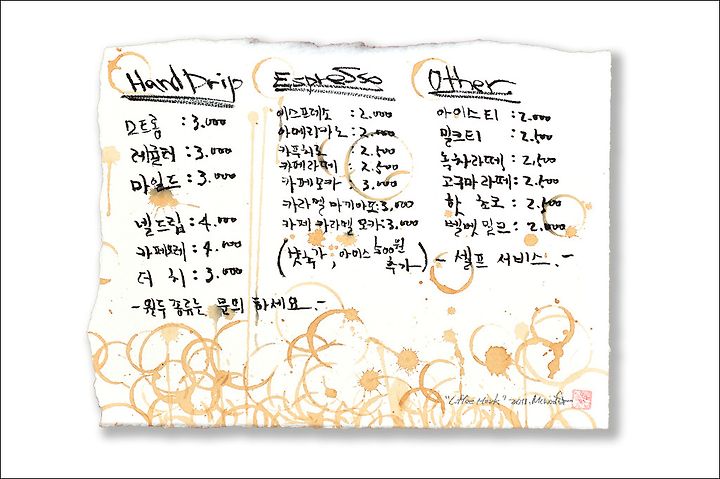 Hand Drip
스트롱 : 3.000
레귤러 : 3.000
마일드 : 3.000
넬드립 : 4.000
카페오레 : 4.000
더 치 : 3.000
- 원두 종류는 문의 하세요. -
Espresso
에스프레소 : 2.000
아메리카노 : 2.000
카푸치노 : 2.500
카페라떼 : 2.500
카페모카 : 3.000
카라멜 마키아또 : 3,000
카페 카라멜 모카 : 3.000
(샷추가, 아이스 500원 추가)
Other
아이스티 : 2.000
밀크티 : 2.500
녹차라떼 : 2.500
고구마라떼 : 2.500
핫 초코 : 2.500
벨벳밀크 : 2.000
- 셀프 서비스. -
"Coffee Mark" 2011.